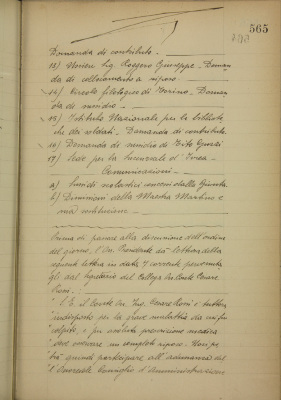 565
Domanda di contributo.
13) Usciere Sig. Roggero Giuseppe. Doman
da di collocamento a riposo.
14) Circolo filologico di Torino. Doman
da di sussidio.
15) Istituto Nazionale per le bibliote
che dei soldati. Domanda di contributo.
16) Domanda di sussidio di Tito
17) Sede per la succursale d'Ivrea.
Comunicazioni.
a) Sussidi scolastici concessi dalla Giunta.
b) Dimissioni della Maestra Martino e
sua sostituzione.
Prima di passare alla discussione dell'ordine
del giorno, l'On. Presidente dà lettura della
seguente lettera in data 7 corrente pervenuta
gli dal Segretario del Collega On. Conte Cesare
Rossi:
"S. E. il Conte On. Ing. Cesare Rossi è tuttora
indisposto per la grave malattia da cui fu
colpito, e per assoluta prescrizione medica
deve osservare un completo riposo. Non po
trà quindi partecipare all'adunanza del
l'Onorevole Consiglio d'Amministrazione